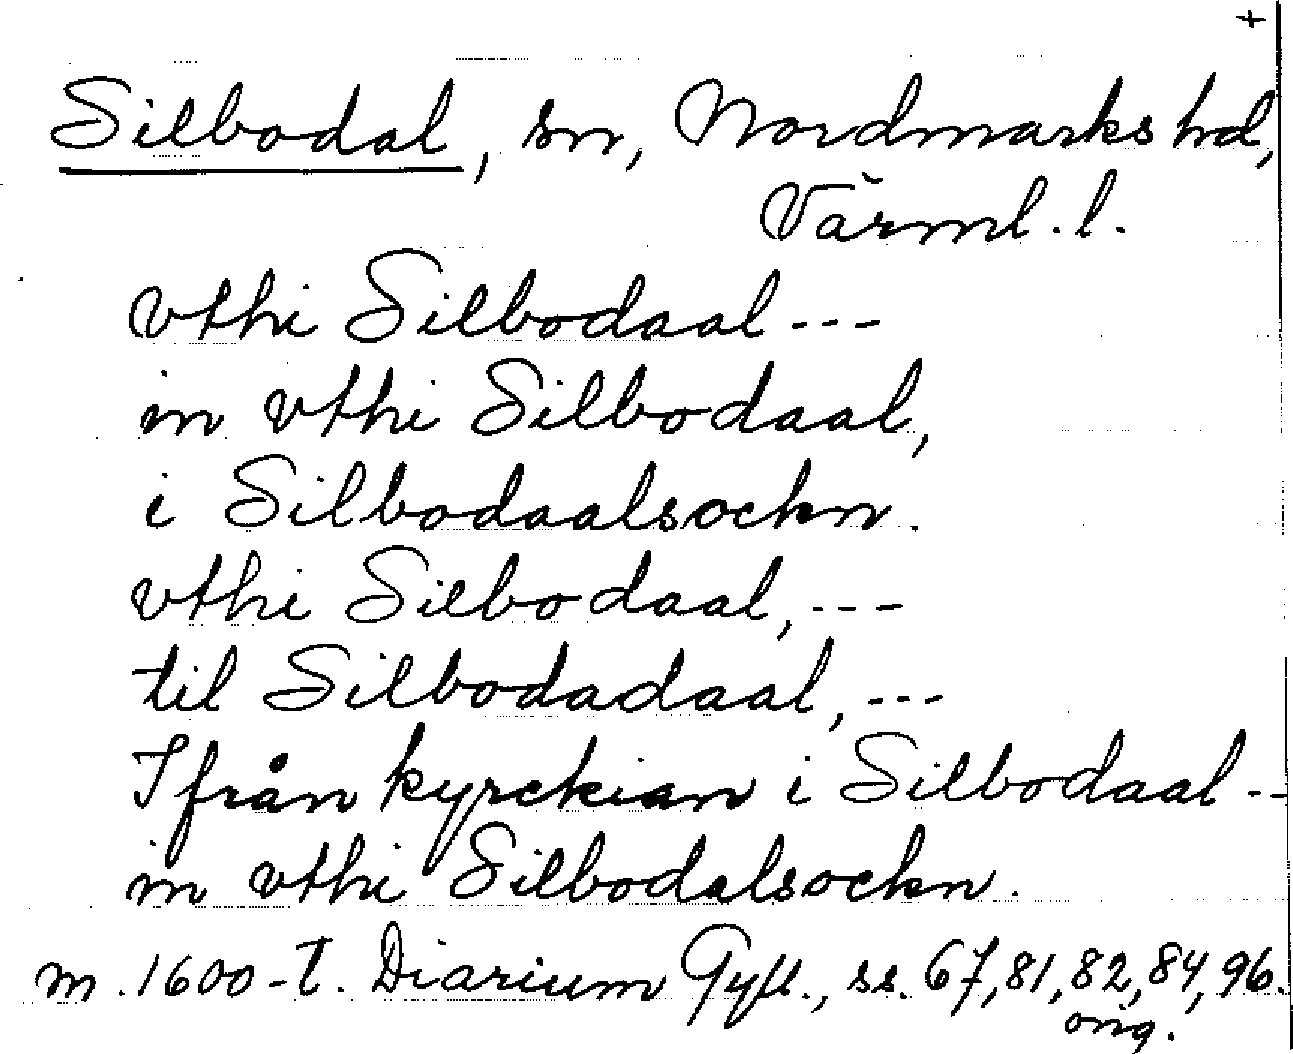 +
Silbodal, sn, Nordmarks hd,
Värml. l.
vthi Silbodaal ---
in vthi Silbodaal,
i Silbodaalsockn.
vthi Silbodaal, ---
til Silbodadaal, ---
Ifrån kyrckian i Silbodaal --
in vthi Silbodalsockn.
m. 1600-t. Diarium Gyll., ss. 67, 81, 82, 84, 96.
orig.